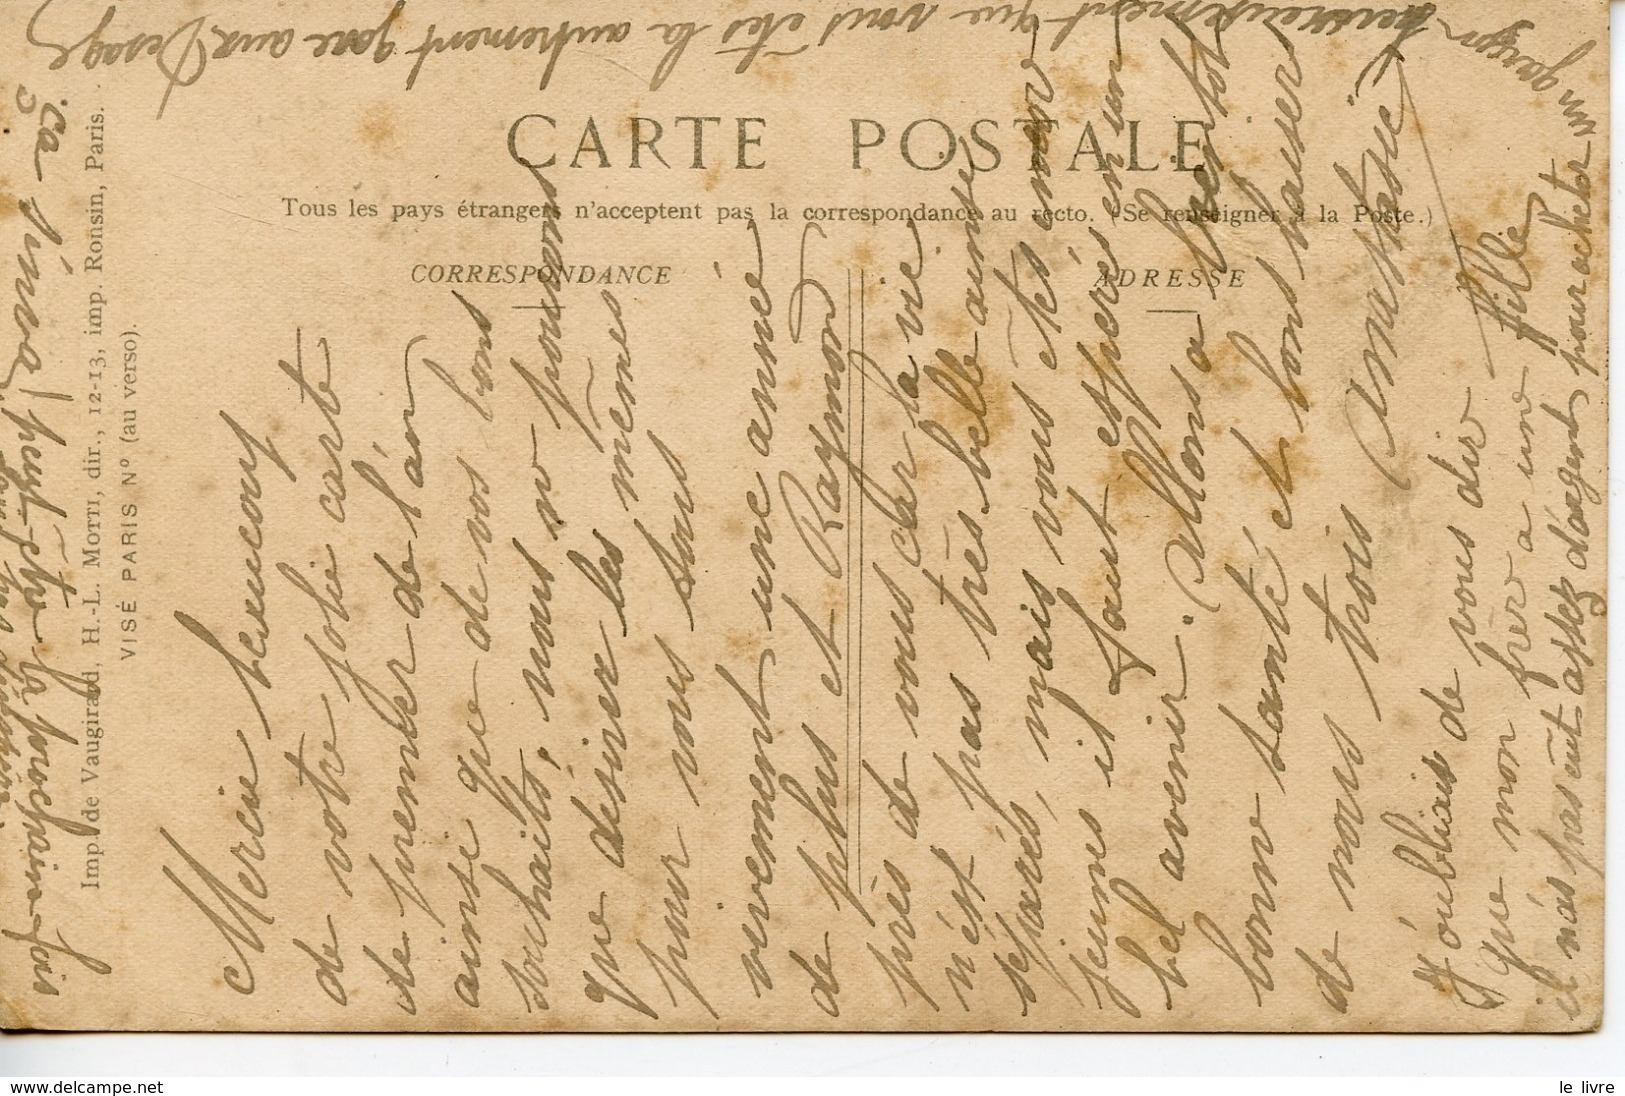 CARTE POSTALE
Tous les pays étrangers n'acceptent pas la correspondance au recto. (Se renseigner à la Poste.)
CORRESPONDANCE
ADRESSE
Imp. de Vaugirard, H.-L. MOTTI, dir., 12-13, imp. Ronsin, Paris.
VISÉ PARIS Nº (au verso).
Mercie beaucoup
de votre jolie carte
de premier de l'an
ainse que de vos bons
souhaits, nous n pouvons
que désirer les mêmes
pour vous tous
vivement une anné
de plus et Raymond
près de vous car la vie
n'ést pas très belle ainse
séparés, mais vous étés encor
jeunes il faut espérés en un
bel avenir. Allons a bientot
bonn santé et bons baisers
de nous trois Anastasie
J'oubliais de vous dir
que mon frèr a une fille
il n'as pas eut assez d'argent pour acheter un
garçon heureusement que vous étés la autrement gare aux
ça sira peut-étre la prochaine fois
le livre
www.delcampe.net